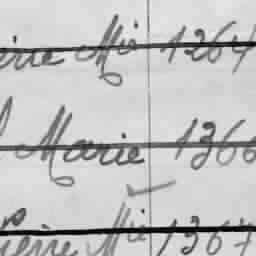 erre Mie 1264
Marie 1366
Pierre Mie 1367